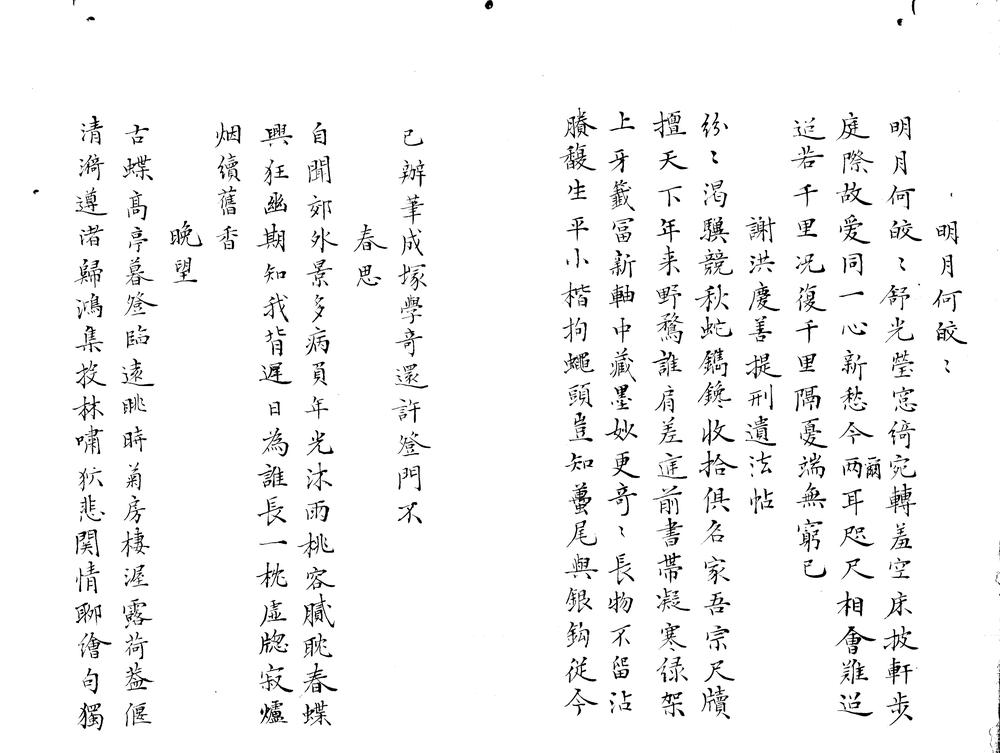 明月何皎〻
明月何皎〻舒光瑩窓綺宛轉羞空床披軒步
庭際故爱同一心新愁今兩爾耳咫尺相會難迢
迢若千里况復千里隔憂端無窮已
謝洪慶善提刑遺法帖
紛〻渴驥競秋蛇鐫鑱收拾俱名家吾宗尺牘
擅天下年来野鶩誰肩差庭前書帶凝寒緑架
上牙籤冨新軸中藏墨妙更竒〻長物不留沾
賸馥生平小楷拘蠅頭豈知蠆尾與銀鈎従今
已辦筆成塚學竒還許登門不
春思
自聞郊外景多病負年光沐雨桃容膩眺春蝶
興狂幽期知我背遲日為誰長一枕虛牕寂爐
烟續舊香
晚望
古蝶髙亭暮登臨遠眺時菊房棲渥露荷葢偃
清漪遵渚歸鴻集投林嘯狖悲関情聊繪句獨